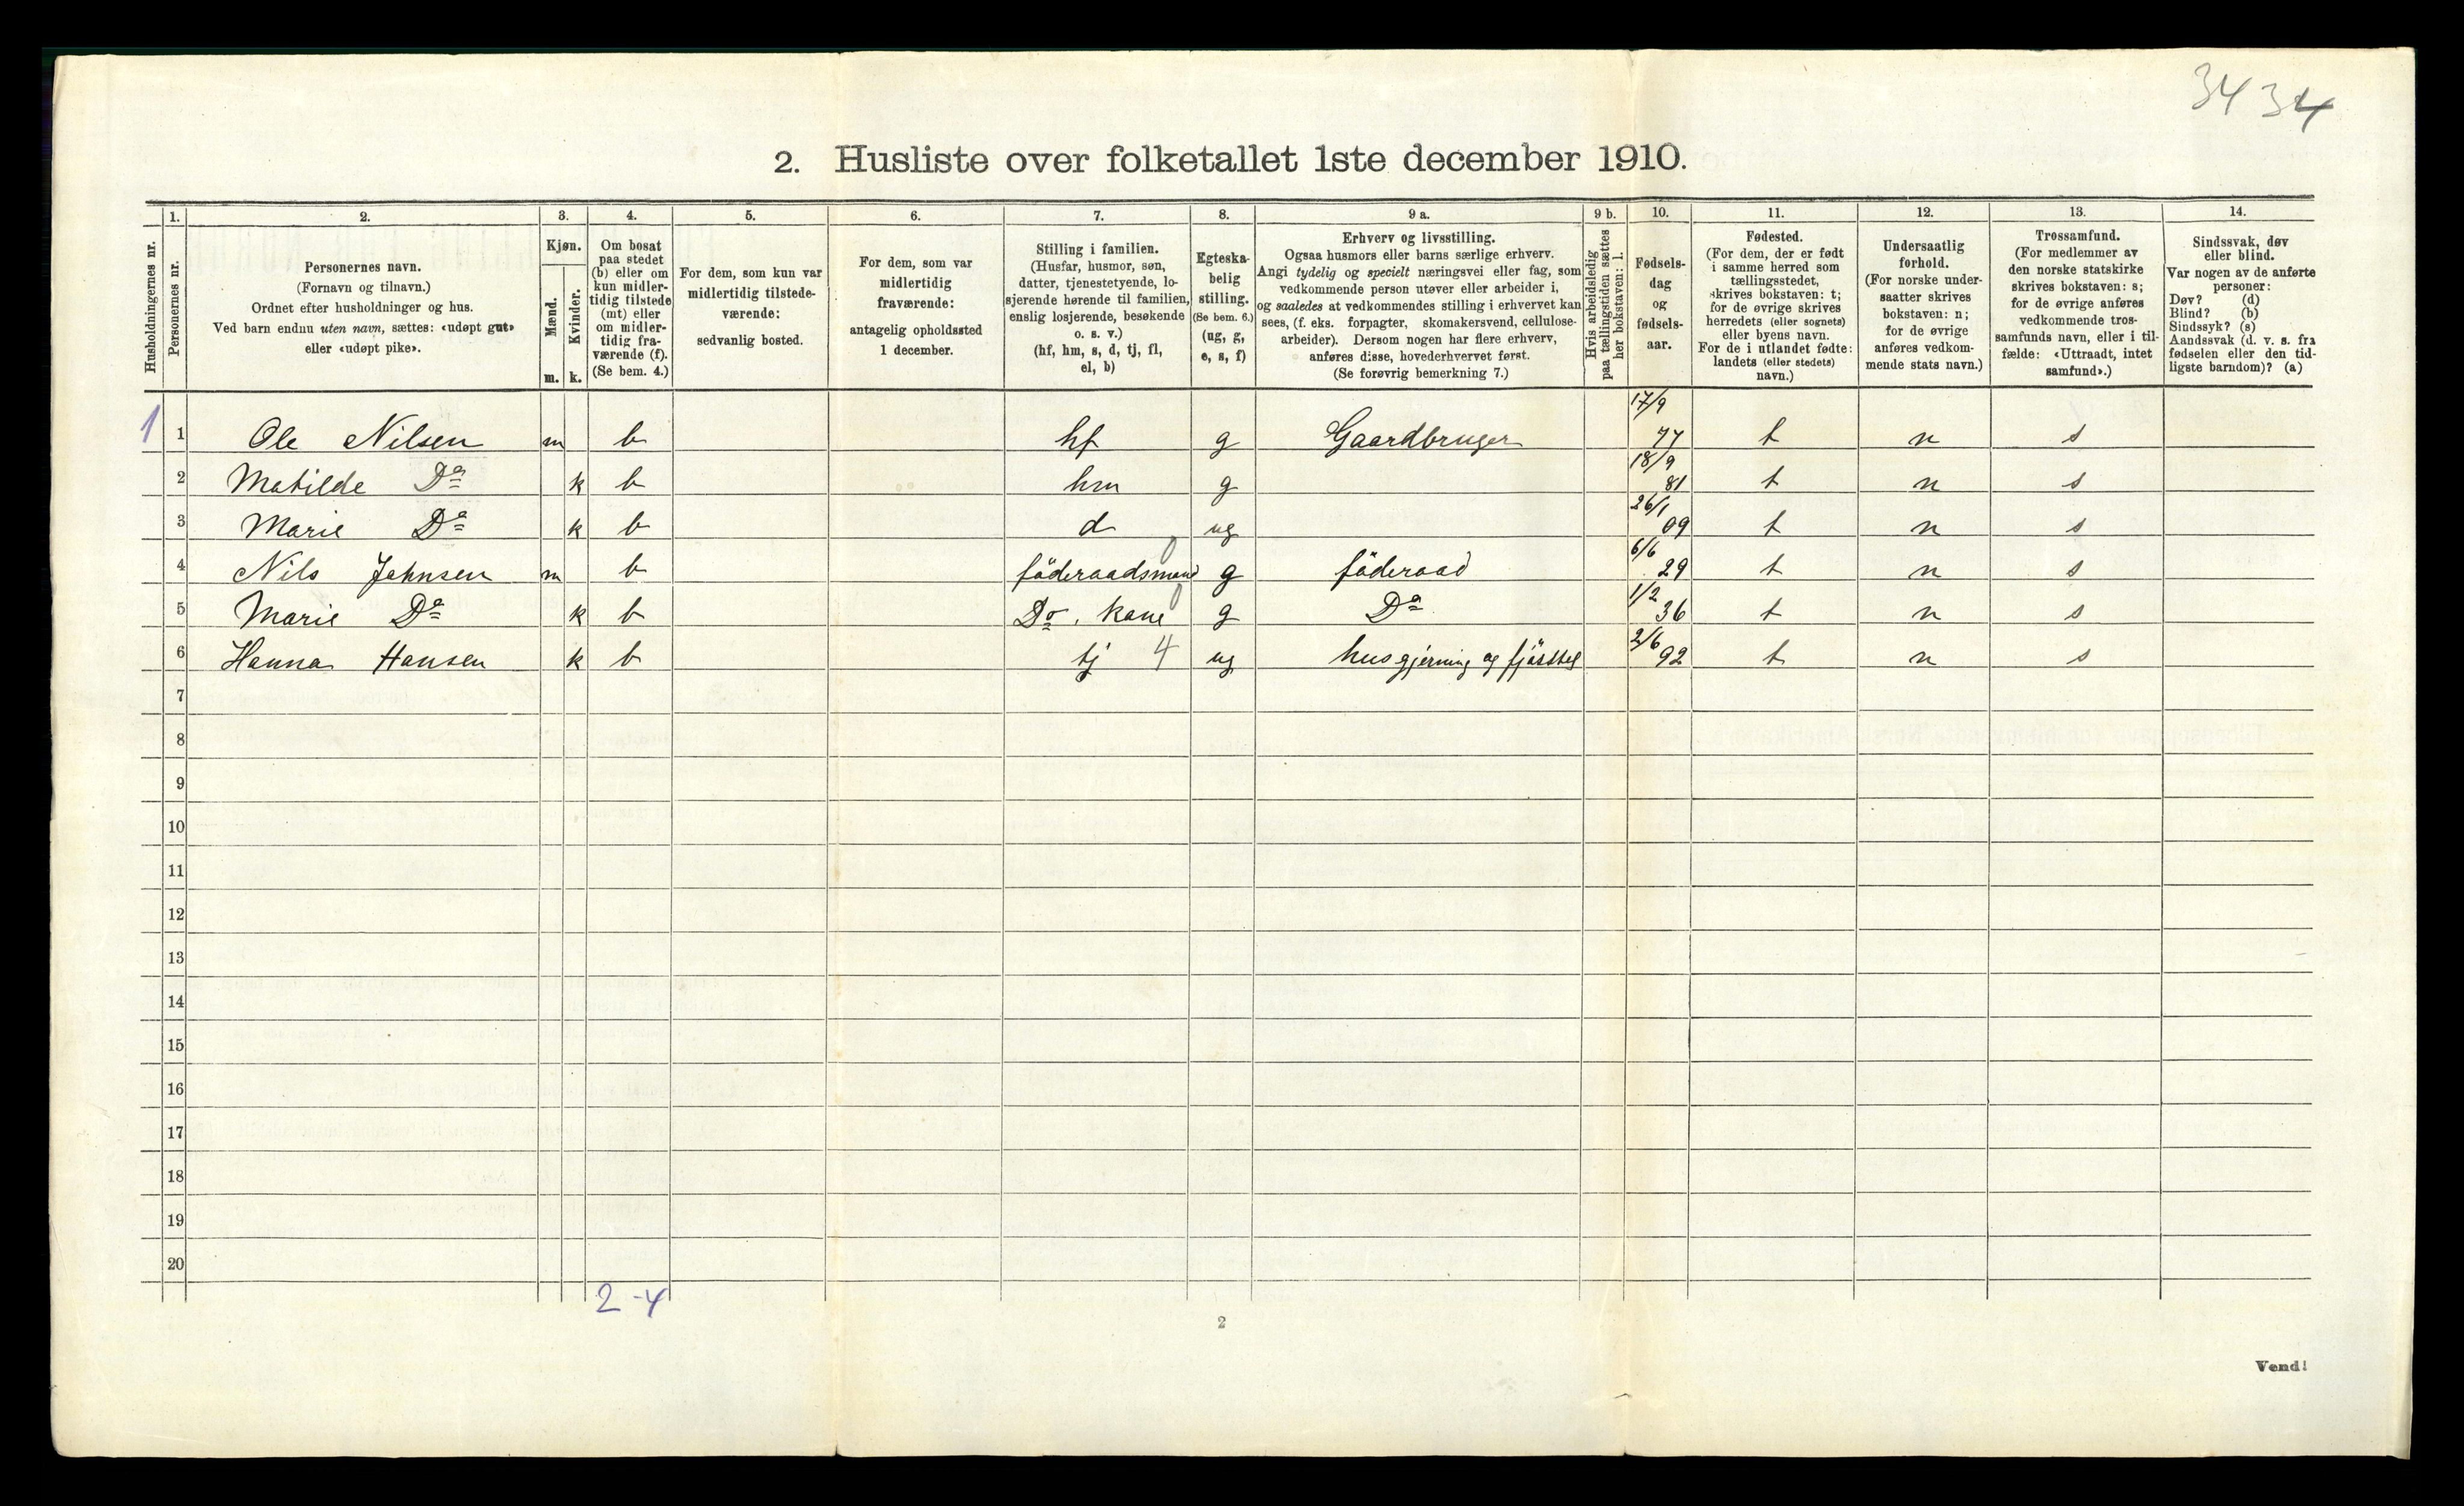 34 34
2. Husliste over folketallet 1ste december 1910.
Husholdningernes nr.
1. Personernes nr.
2. Personernes navn.
(Fornavn og tilnavn.)
Ordnet efter husholdninger og hus.
Ved barn endnu uten navn, sættes: «udøpt gut»
eller «udøpt pike».
3. Kjøn.
Mænd. Kvinder.
m. k.
4. Om bosat
paa stedet
(b) eller om
kun midler-
tidig tilstede
(mt) eller
om midler-
tidig fra-
værende (f).
(Se bem. 4.)
5. For dem, som kun var
midlertidig tilstede-
værende:
sedvanlig bosted.
6. For dem, som var
midlertidig
fraværende:
antagelig opholdssted
1 december.
7. Stilling i familien.
(Husfar, husmor, søn,
datter, tjenestetyende, lo-
sjerende hørende til familien,
enslig losjerende, besøkende
o. s. v.)
(hf, hm, s, d, tj, fl,
el, b)
8. Egteska-
belig
stilling.
(Se bem. 6.)
(ug, g,
e, s, f)
9 a. Erhverv og livsstilling.
Ogsaa husmors eller barns særlige erhverv.
Angi tydelig og specielt næringsvei eller fag, som
vedkommende person utøver eller arbeider i,
og saaledes at vedkommendes stilling i erhvervet kan
sees, (f. eks. forpagter, skomakersvend, cellulose-
arbeider). Dersom nogen har flere erhverv,
anføres disse, hovederhvervet først.
(Se forøvrig bemerkning 7.)
9 b. Hvis arbeidsledig
paa tællingstiden sættes
her bokstaven: l.
10. Fødsels-
dag
og
fødsels-
aar.
11. Fødested.
(For dem, der er født
i samme herred som
tællingsstedet,
skrives bokstaven: t;
for de øvrige skrives
herredets (eller sognets)
eller byens navn.
For de i utlandet fødte:
landets (eller stedets)
navn.)
12. Undersaatlig
forhold.
(For norske under-
saatter skrives
bokstaven: n;
for de øvrige
anføres vedkom-
mende stats navn.)
13. Trossamfund.
(For medlemmer av
den norske statskirke
skrives bokstaven: s;
for de øvrige anføres
vedkommende tros-
samfunds navn, eller i til-
fælde: «Uttraadt, intet
samfund».)
14. Sindssvak, døv
eller blind.
Var nogen av de anførte
personer:
Døv? (d)
Blind? (b)
Sindssyk? (s)
Aandssvak (d. v. s. fra
fødselen eller den tid-
ligste barndom)? (a)
1 1 Ole Nilsen m b hf g Gaardbruger 17/9 77 t n s
2 Matilde Do k b hm g 18/9 81 t n s
3 Marie Do k b d ug 26/1 09 t n s
4 Nils Johnsen m b föderaadsmand 0 g föderaad 6/6 29 t n s
5 Marie Do k b Do. kone 0 g Do 1/2 36 t n s
6 Hanna Hansen k b tj 4 ug husgjerning og fjösstel 2/6 92 t n s
7
8
9
10
11
12
13
14
15
16
17
18
19
20
2 - 4
2
Vend!